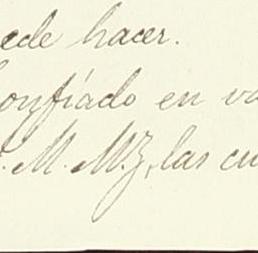 ede hacer.
onfiado en va
. M. M. Z, las cu